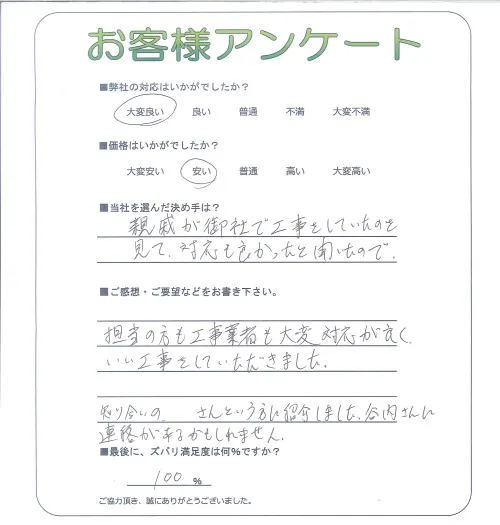 お客様アンケート
■弊社の対応はいかがでしたか？
大変良い 良い 普通 不満 大変不満
■価格はいかがでしたか？
大変安い 安い 普通 高い 大変高い
■当社を選んだ決め手は？
親戚が御社で工事をしていたのを
見て、対応も良かったと聞いたので、
■ご感想・ご要望などをお書き下さい。
担当の方も工事業者も大変対応が良く、
いい工事をしていただきました。
知り合いの さんという方に紹介しました、谷内さんに
連絡があるかもしれません。
■最後に、ズバリ満足度は何%ですか？
100 %
ご協力頂き、誠にありがとうございました。